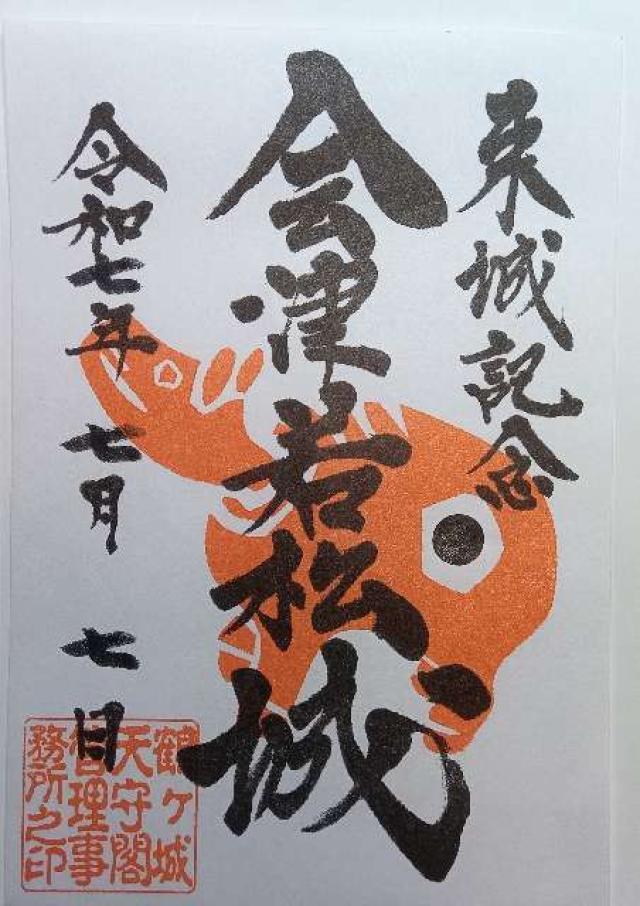 来城記念
会津若松城
令和七年 七月 七日
鶴ヶ城
天守閣
管理事
務所之印